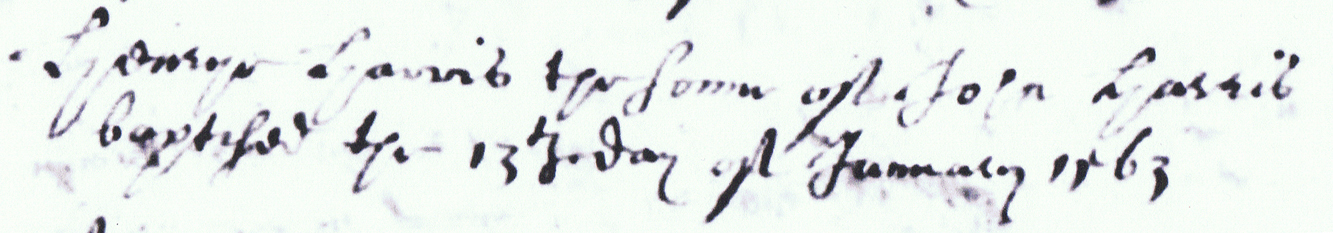 Henrye Harris the sonn off John Harris
baptised the 13th day off January 1563